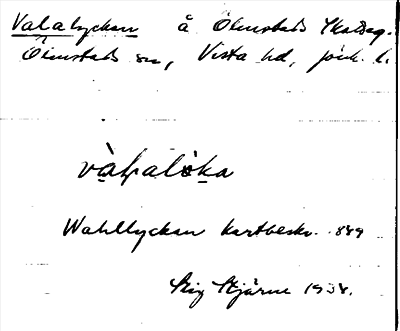 Valalyckan å Ölmstads Skatteg.
Ölmstads sn, Vista hd, Jönk. l.
Wahllyckan kartbeskr. 849
Stig Stjärne 1934.